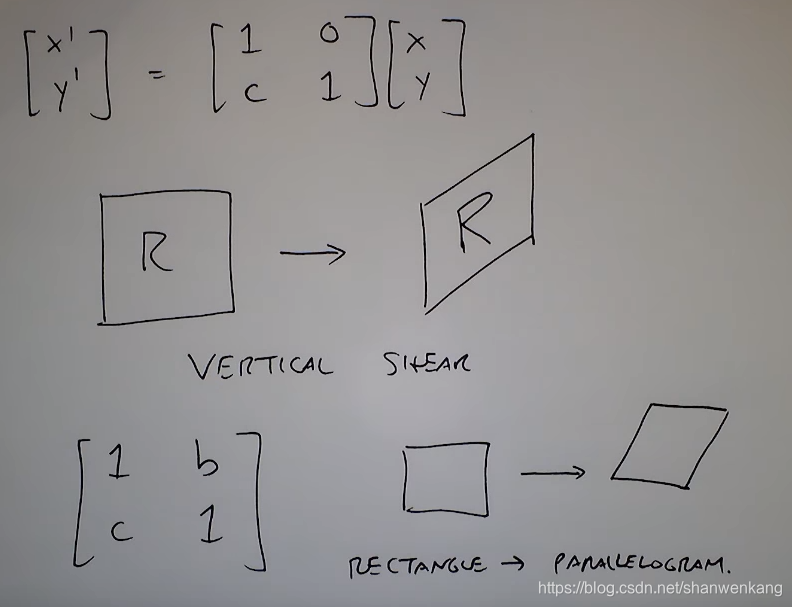 [x' y'] = [1 0 c 1] [x y]
R → R
VERTICAL SHEAR
[1 b c 1] →
RECTANGLE → PARALLELOGRAM.
https://blog.csdn.net/shanwenkang